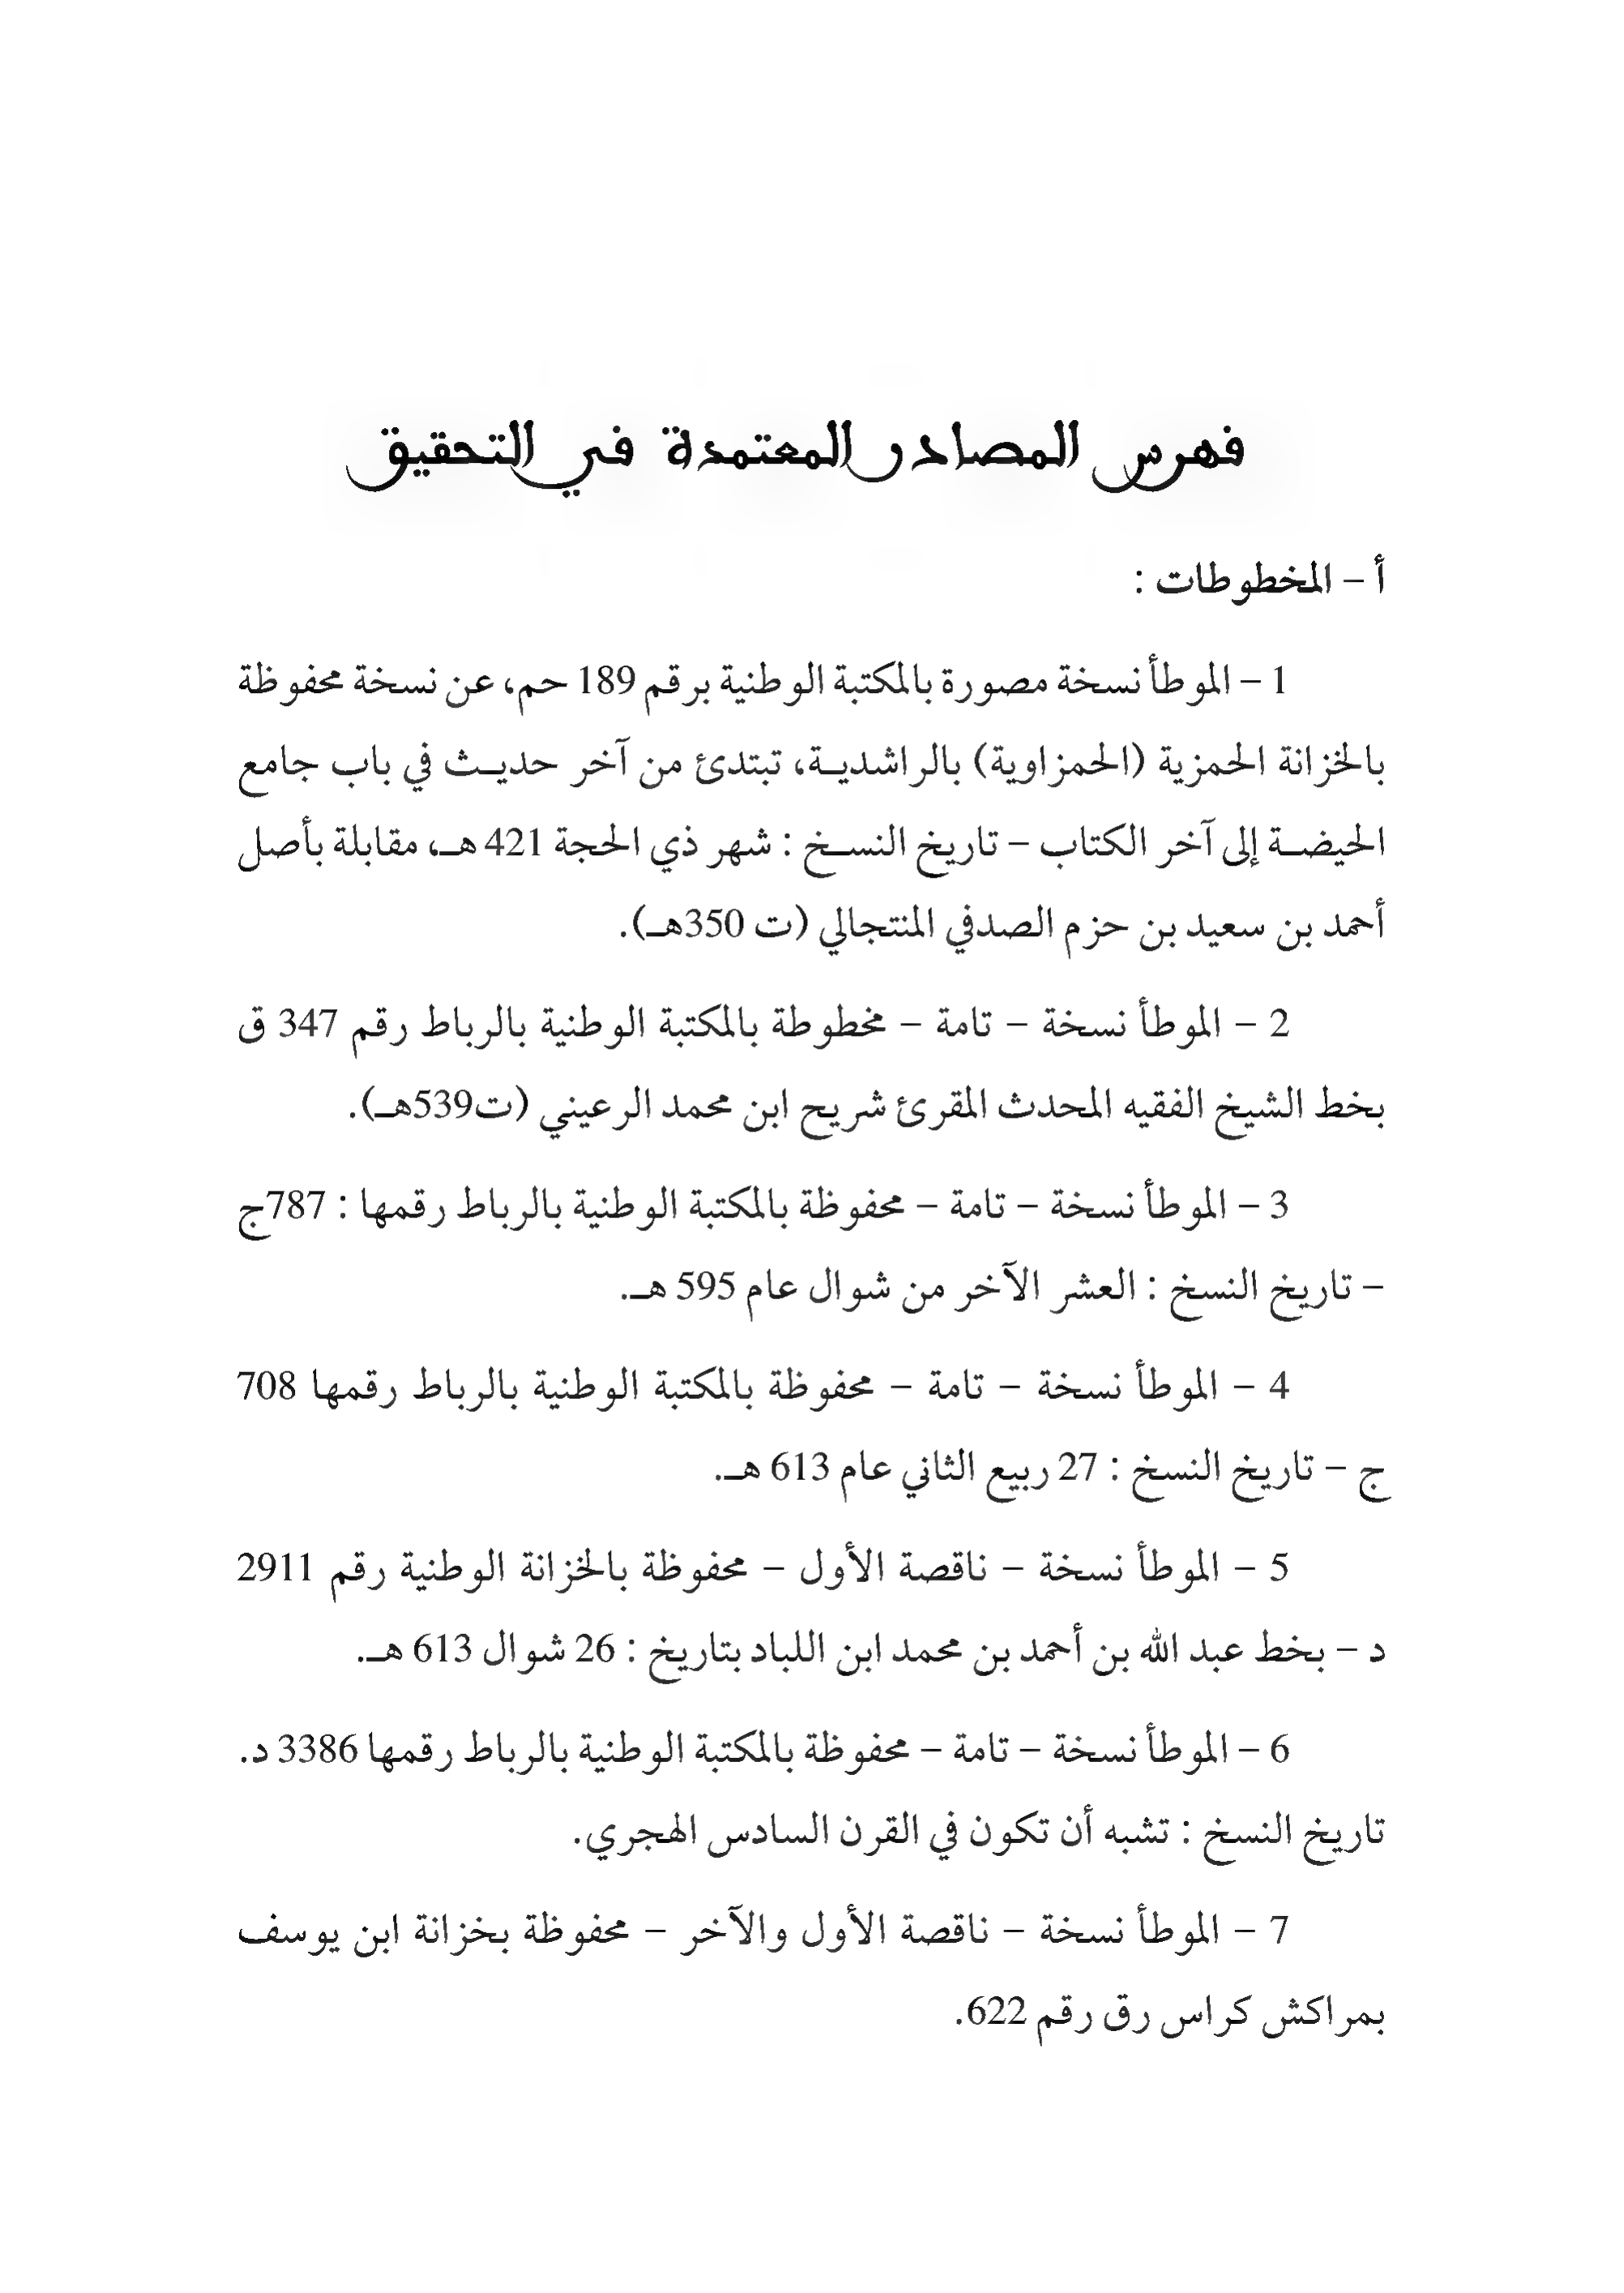 فهرس المصادر المعتمدة في التحقيق
أ – المخطوطات :
1 – الموطأ نسخة مصورة بالمكتبة الوطنية برقم 189 حم، عن نسخة محفوظة
بالخزانة الحمزية (الحمزاوية) بالراشديـة، تبتدئ من آخر حديـث في باب جامع
الحيضـة إلى آخر الكتاب – تاريخ النسـخ : شهر ذي الحجة 421 هـ، مقابلة بأصل
أحمد بن سعيد بن حزم الصدفي المنتجالي (ت 350هـ).
2 – الموطأ نسخة – تامة – مخطوطة بالمكتبة الوطنية بالرباط رقم 347 ق
بخط الشيخ الفقيه المحدث المقرئ شريح ابن محمد الرعيني (ت539هـ).
3 – الموطأ نسخة – تامة – محفوظة بالمكتبة الوطنية بالرباط رقمها : 787ج
– تاريخ النسخ : العشر الآخر من شوال عام 595 هـ.
4 – الموطأ نسخة – تامة – محفوظة بالمكتبة الوطنية بالرباط رقمها 708
ج – تاريخ النسخ : 27 ربيع الثاني عام 613 هـ.
5 – الموطأ نسخة – ناقصة الأول – محفوظة بالخزانة الوطنية رقم 2911
د – بخط عبد الله بن أحمد بن محمد ابن اللباد بتاريخ : 26 شوال 613 هـ.
6 – الموطأ نسخة – تامة – محفوظة بالمكتبة الوطنية بالرباط رقمها 3386 د.
تاريخ النسخ : تشبه أن تكون في القرن السادس الهجري.
7 – الموطأ نسخة – ناقصة الأول والآخر – محفوظة بخزانة ابن يوسف
بمراكش كراس رق رقم 622.